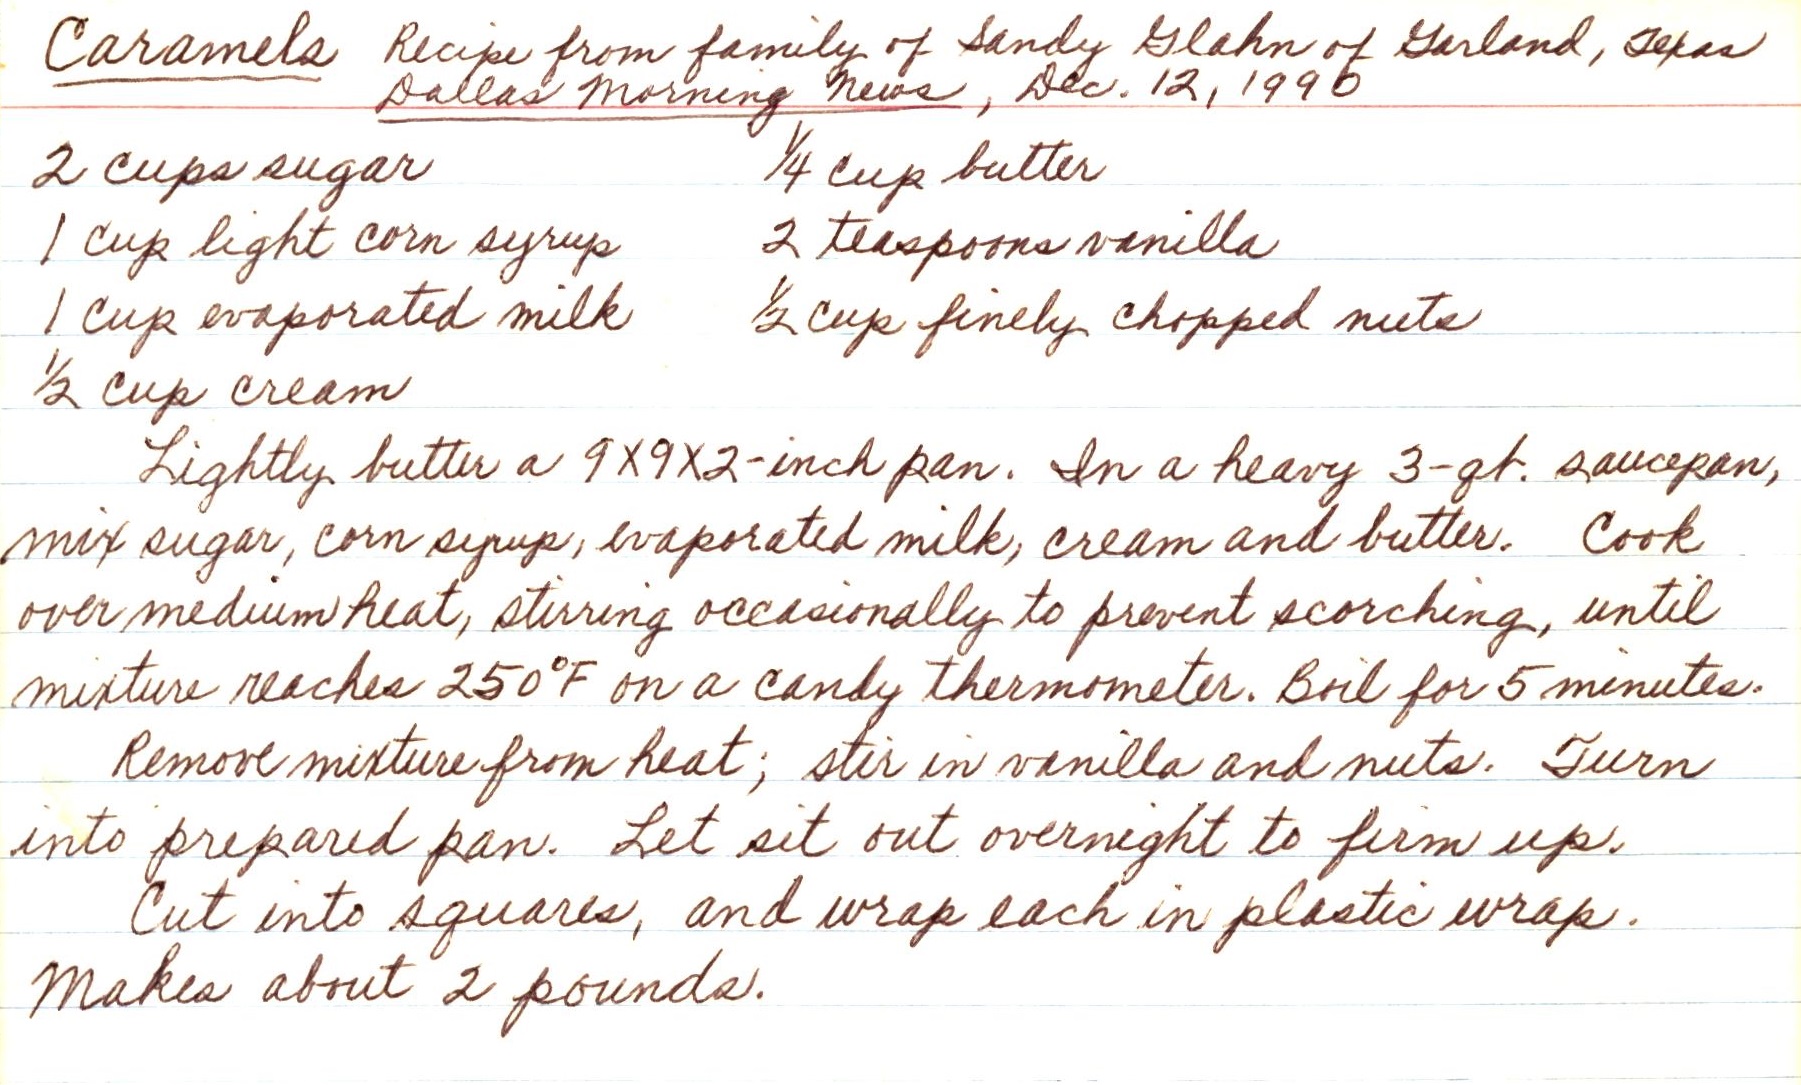 Caramels Recipe from family of Sandy Glahn of Garland, Texas
Dallas Morning News, Dec. 12, 1990
2 cups sugar ¼ cup butter
1 cup light corn syrup 2 teaspoons vanilla
1 cup evaporated milk ½ cup finely chopped nuts
½ cup cream
Lightly butter a 9X9X2-inch pan. In a heavy 3-qt. saucepan,
mix sugar, corn syrup, evaporated milk, cream and butter. Cook
over medium heat, stirring occasionally to prevent scorching, until
mixture reaches 250°F on a candy thermometer. Boil for 5 minutes.
Remove mixture from heat; stir in vanilla and nuts. Turn
into prepared pan. Let sit out overnight to firm up.
Cut into squares, and wrap each in plastic wrap.
Makes about 2 pounds.